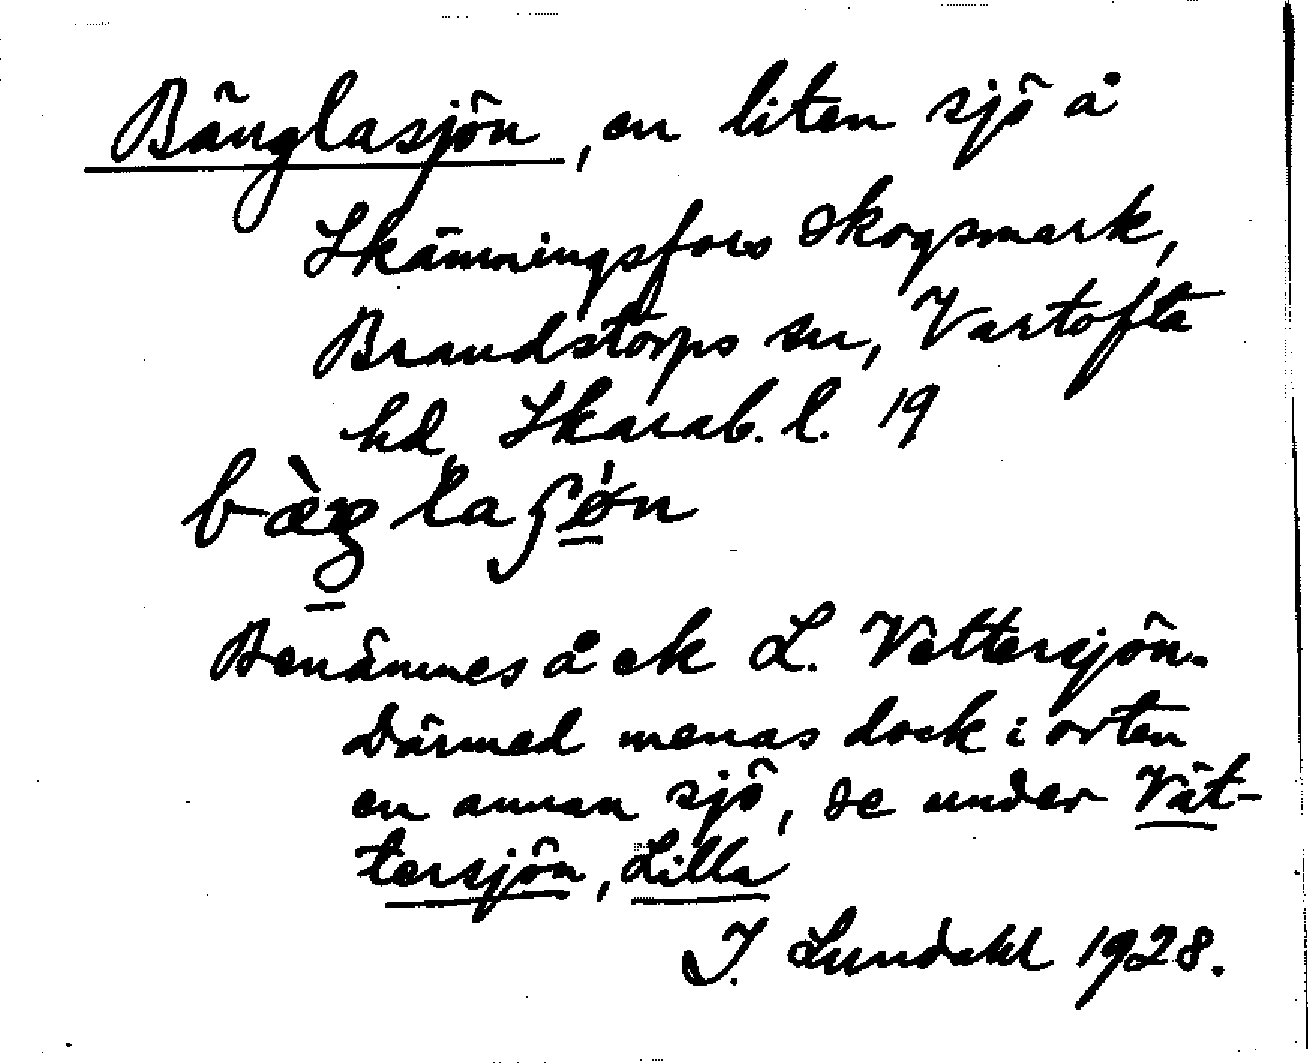 Bänglasjön, en liten sjö å
Skämningsfors skogsmark,
Brandstorps sn, Vartofta
hd Skarab. l. 19
Benämnes å ek L. Vettersjön.
Därmed menas dock i orten
en annan sjö, se under Vät-
tersjön, Lilla
I. Lundahl 1928.